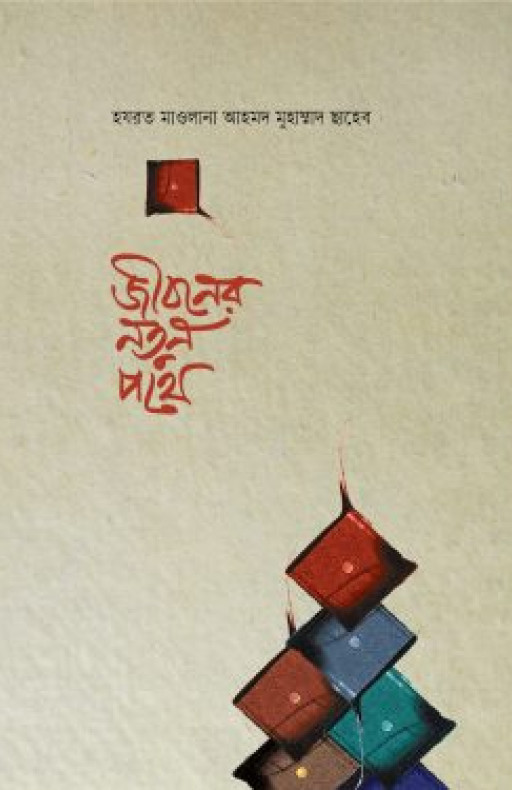 হযরত মাওলানা আহমদ মুহাম্মাদ ছাহেব
জীবনের
নতুন
পথে